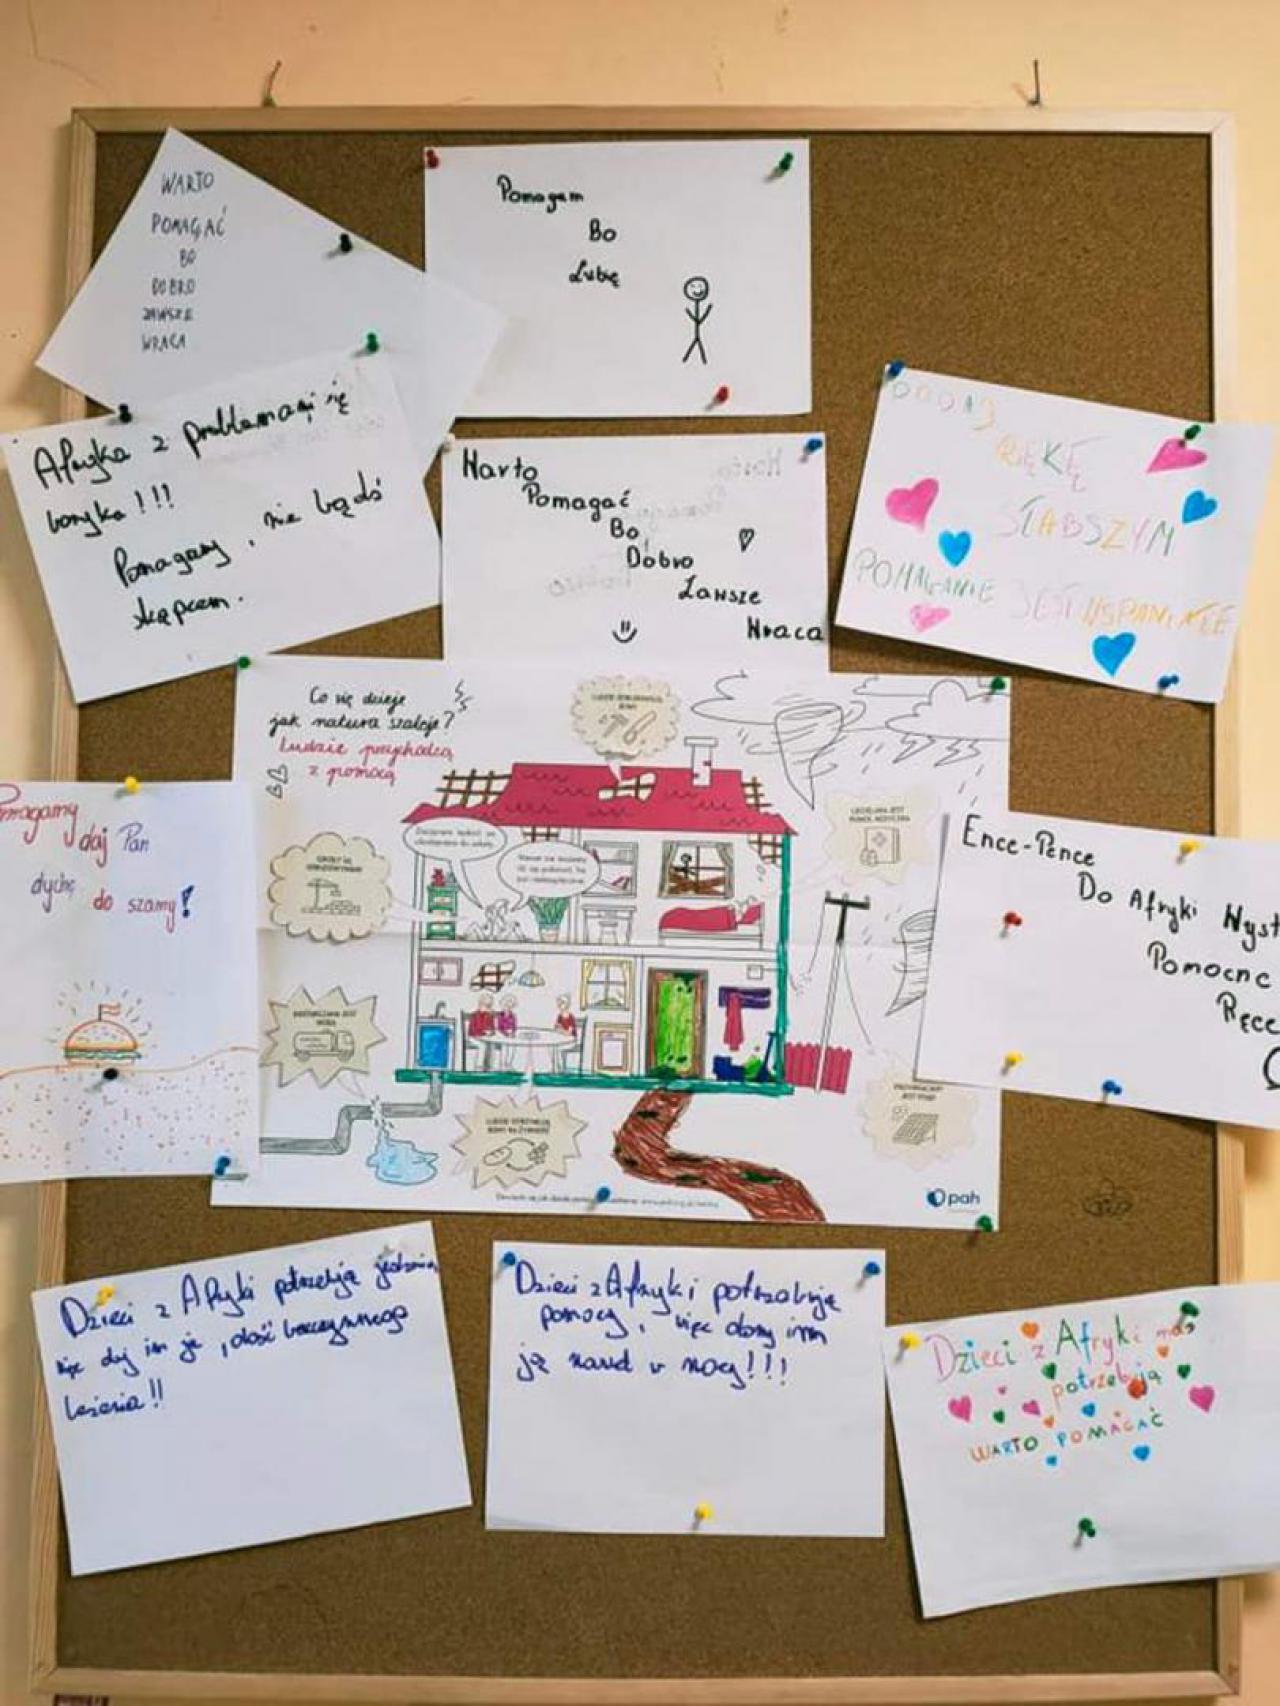 WARTO
POMAGAĆ
BO
DOBRO
ZAWSZE
WRACA
Pomagam
Bo
Lubię
Afryka z problemami się
boryka!!!
Pomagamy, nie bądź
skąpcem.
Warto
Pomagać
Bo
Dobro
Zawsze
Wraca
PODAJ
RĘKĘ
SŁABSZYM
POMAGANIE JEST WSPANIAŁE
Co się dzieje
jak natura szaleje?
Ludzie przychodzą
z pomocą
pah
Pomagamy
daj Pan
dychę
do szamy!
Ence-Pence
Do Afryki Wyst
Pomocne
Ręce
Dzieci z Afryki potrzebują jedzenia
więc daj im je, dość bezczynnego
leżenia!!
Dzieci z Afryki potrzebują
pomocy, więc damy im
ją nawet w nocy!!!
Dzieci z Afryki nas
potrzebują
WARTO POMAGAĆ